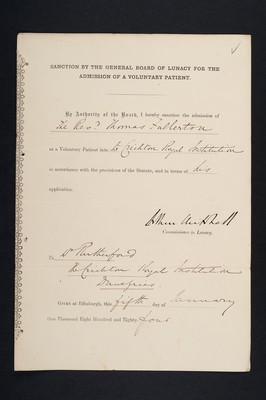 SANCTION BY THE GENERAL BOARD OF LUNACY FOR THE
ADMISSION OF A VOLUNTARY PATIENT.
By Authority of the Board, I hereby sanction the admission of
The Revd. Thomas Fullerton
as a Voluntary Patient into the Crichton Royal Institution
in accordance with the provision of the Statute, and in terms of his
application.
Commissioner in Lunacy.
To Dr Rutherford
The Crichton Royal Institution
Dumfries
Given at Edinburgh, this fifth day of January
One Thousand Eight Hundred and Eighty-four